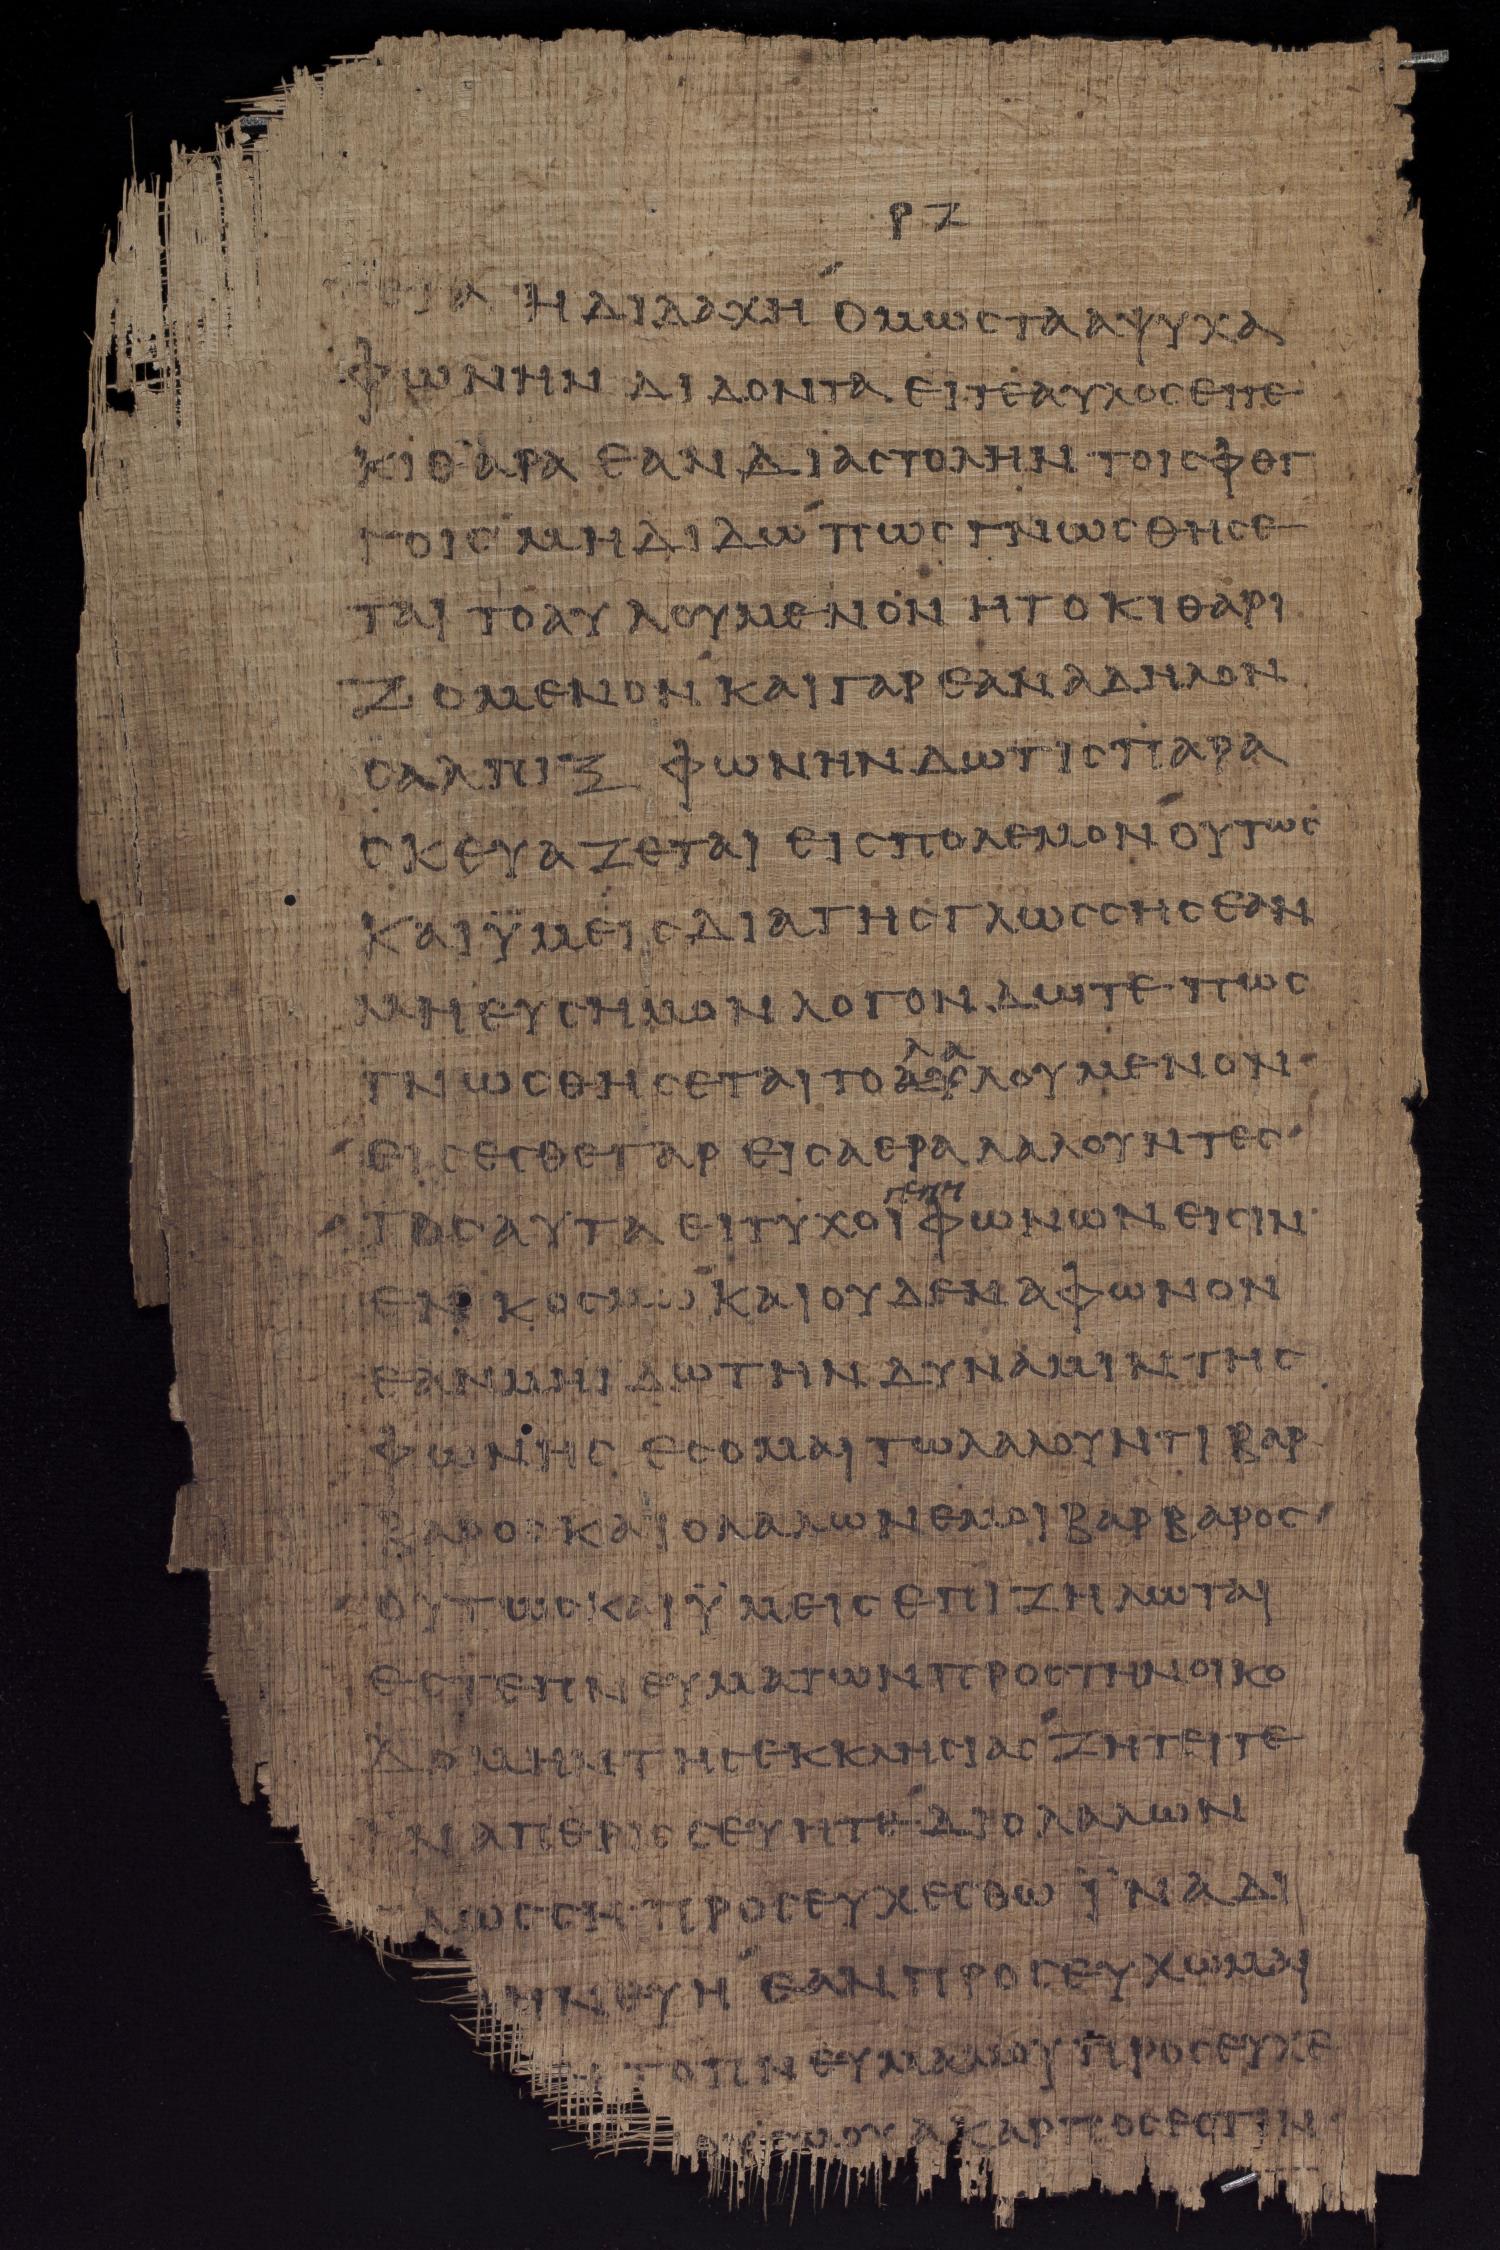 ΡΖ
Η ΔΙΔΑΧΗ ΟΜΩΣΤΑΑΨΥΧΑ
ΦΩΝΗΝ ΔΙΔΟΝΤΑ ΕΙΤΕΑΥΛΟΣΕΙΤΕ
ΚΙΘΑΡΑ ΕΑΝ ΔΙΑΣΤΟΛΗΝ ΤΟΙΣΦΘΓ
ΓΟΙΣ ΜΗΔΙΔΩ ΠΩΣΓΝΩΣΘΗΣΕ
ΤΑΙ ΤΟΑΥΛΟΥΜΕΝΟΝ ΗΤΟΚΙΘΑΡΙ
ΖΟΜΕΝΟΝ ΚΑΙΓΑΡ ΕΑΝ ΑΔΗΛΟΝ
ΣΑΛΠΙΞ ΦΩΝΗΝ ΔΩΤΙΣΠΑΡΑ
ΣΚΕΥΑΖΕΤΑΙ ΕΙΣΠΟΛΕΜΟΝ ΟΥΤΩΣ
ΚΑΙΫΜΕΙΣΔΙΑΤΗΣΓΛΩΣΣΗΣΕΑΝ
ΜΗΕΥΣΗΜΟΝ ΛΟΓΟΝ ΔΩΤΕ ΠΩΣ
ΓΝΩΣΘΗΣΕΤΑΙΤΟΛΑΛΟΥΜΕΝΟΝ·
ΕΙΣΕΣΘΕΓΑΡ ΕΙΣΑΕΡΑ ΛΑΛΟΥΝΤΕΣ
ΤΟΣΑΥΤΑ ΕΙΤΥΧΟΙ ΓΕΝΗ ΦΩΝΩΝ ΕΙΣΙΝ
ΕΝ ΚΟΣΜΩ ΚΑΙΟΥΔΕΝ ΑΦΩΝΟΝ
ΕΑΝΜΗΙΔΩΤΗΝ ΔΥΝΑΜΙΝ ΤΗΣ
ΦΩΝΗΣ ΕΣΟΜΑΙ ΤΩΛΑΛΟΥΝΤΙ ΒΑΡ
ΒΑΡΟΣ ΚΑΙΟΛΑΛΩΝΕΜΟΙ ΒΑΡΒΑΡΟΣ
ΟΥΤΩΣΚΑΙΫΜΕΙΣ ΕΠΙΖΗΛΩΤΑΙ
ΕΣΤΕΠΝΕΥΜΑΤΩΝΠΡΟΣΤΗΝΟΙΚΟ
ΔΟΜΗΝΤΗΣΕΚΚΛΗΣΙΑΣ ΖΗΤΕΙΤΕ
ΙΝΑΠΕΡΙΣΣΕΥΗΤΕ ΔΙΟΛΑΛΩΝ
ΛΩΣΣΗ ΠΡΟΣΕΥΧΕΣΘΩ ΪΝΑΔΙ
ΜΗΝΕΥΗ ΕΑΝ ΠΡΟΣΕΥΧΩΜΑΙ
ΤΟΠΝΕΥΜΑΜΟΥ ΠΡΟΣΕΥΧΕ
ΜΟΥ ΑΚΑΡΠΟΣΕΣΤΙΝ